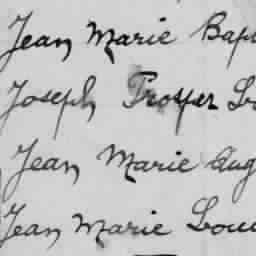 Jean Marie Bap
Joseph Prosper Lo
Jean Marie Aug
Jean Marie Loui